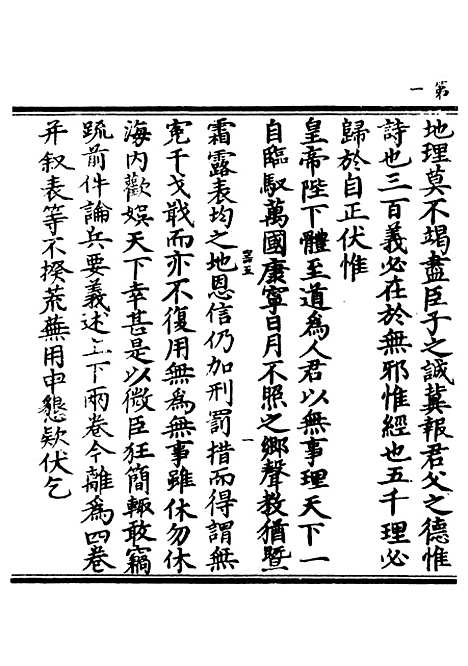 第一
地理莫不竭盡臣子之誠冀報君父之德惟
詩也三百義必在於無邪惟經也五千理必
歸於自正伏惟
皇帝陛下體至道為人君以無事理天下一
自臨馭萬國康寧日月不照之鄉聲教猶暨
空五
一
霜露表均之地恩信仍加刑罰措而得謂無
寃千戈戢而亦不復用無為無事雖休勿休
海內歡娛天下幸甚是以微臣狂簡輙敢竊
䟽前件論兵要義述上下兩卷今離為四卷
并叙表等不揆荒蕪用申懇欵伏乞